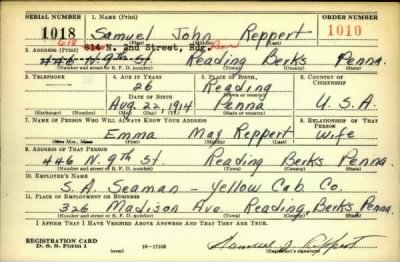 SERIAL NUMBER 1. NAME (Print) ORDER NUMBER
1018 Samuel John Reppert 1010
(First) (Middle) (Last)
618 614 N. 2nd Street, Rdg.
2. ADDRESS (Print)
446 N. 9th St Reading Berks Penna.
(Number and street or R. F. D. number) (Town) (County) (State)
3. TELEPHONE 4. AGE IN YEARS 5. PLACE OF BIRTH 6. COUNTRY OF CITIZENSHIP
26 Reading
DATE OF BIRTH (Town or county)
Aug. 22, 1914 Penna U.S.A.
(Exchange) (No.) (Mo.) (Day) (Yr.) (State or country)
7. NAME OF PERSON WHO WILL ALWAYS KNOW YOUR ADDRESS 8. RELATIONSHIP OF THAT PERSON
Emma May Reppert Wife
(Mr., Mrs., Miss) (First) (Middle) (Last)
9. ADDRESS OF THAT PERSON
446 N. 9th St Reading Berks Penna.
(Number and street or R. F. D. number) (Town) (County) (State)
10. EMPLOYER'S NAME
S. A. Seaman - Yellow Cab Co.
11. PLACE OF EMPLOYMENT OR BUSINESS
326 Madison Ave. Reading, Berks, Penna.
(Number and street or R. F. D. number) (Town) (County) (State)
I AFFIRM THAT I HAVE VERIFIED ABOVE ANSWERS AND THAT THEY ARE TRUE.
REGISTRATION CARD
D. S. S. Form 1 16-17105 Samuel J. Reppert
(over) (Registrant's signature)